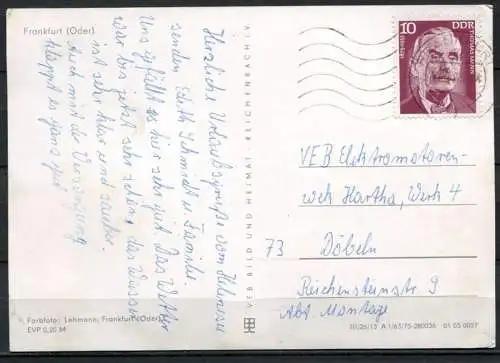 Frankfurt (Oder)
Herzliche Urlaubsgrüße vom Helenesee
senden Edith Schmidt u. Familie.
Uns gefällt es hier sehr gut. Das Wetter
war bis jetzt sehr schön, das Wasser
ist sehr klar und sauber.
Auch mit der Versorgung
klappt es ganz gut
VEB BILD UND HEIMAT · REICHENBACH i. V.
10
DDR
THOMAS MANN
1875-1955
VEB Elektromotoren-
werk Hartha, Werk 4
73 Döbeln
Reichensteinstr. 9
Abt Montage
Farbfoto: Lehmann, Frankfurt (Oder)
EVP 0,20 M
III/26/13 A 1/63/75-280036 01 03 0027